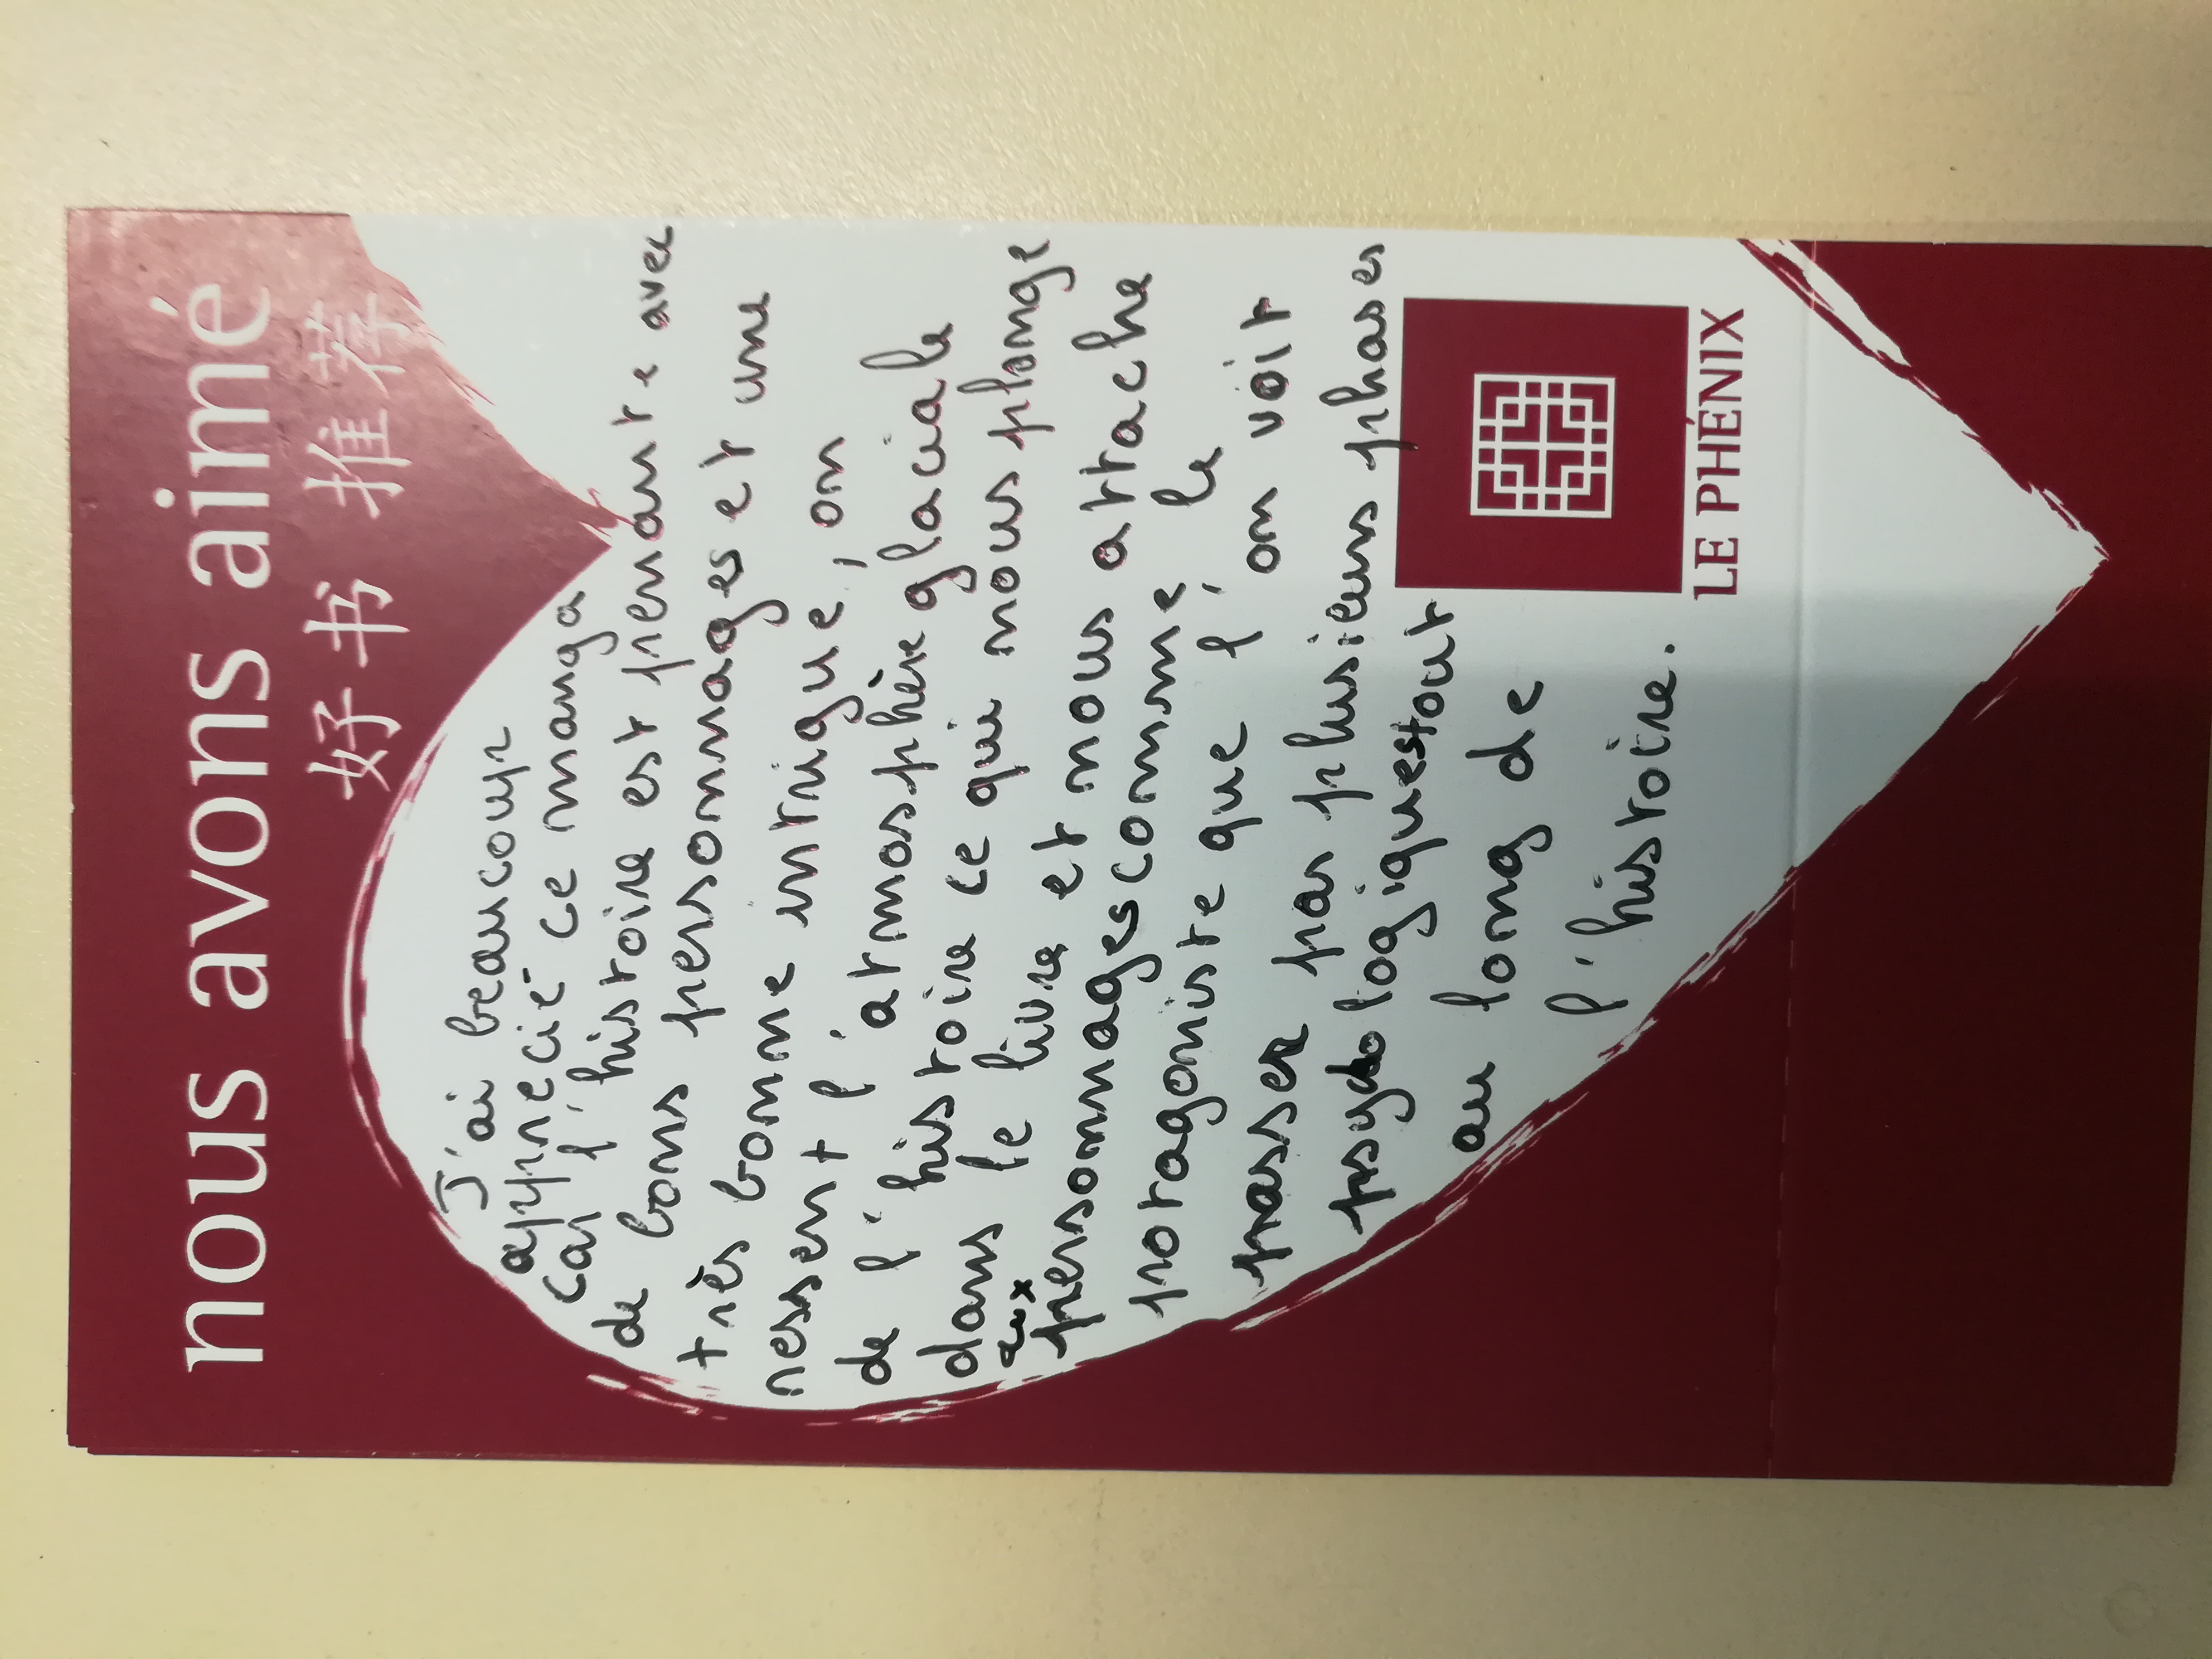 nous avons aimé
好书 推荐
J'ai beaucoup
apprécié ce manga
car l'histoire est prenante avec
de bons personnages et une
très bonne intrigue, on
ressent l'atmosphère glaciale
de l'histoire ce qui nous plonge
dans le livre et nous attache
aux
personnages comme le
protagoniste que l'on voit
passer par plusieurs phases
psychologiques tout
au long de
l'histoire.
LE PHÉNIX